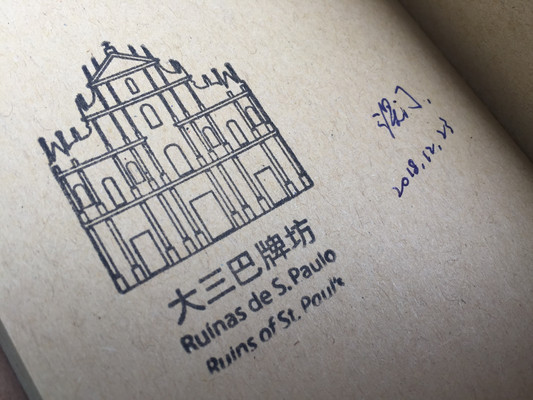 大三巴牌坊
Ruinas de S. Paulo
Ruins of St. Paul's
澳门.
2018.12.25